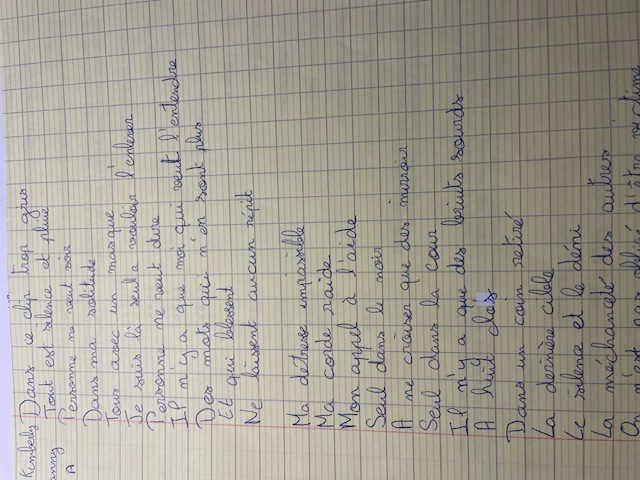 Kimberly Dans ce clip trop gris
Tout est silence et pluie
A Personne ne veut voir
Dans ma solitude
Tous avec un masque
Je suis là seul a vouloir l'enlever
Personne ne veut dire
Il n'y a que moi qui veut l'entendre
Des mots qui n'en sont plus
Et qui blessent
Ne laissent aucun répit
Ma détresse impassible
Ma corde raide
Mon appel à l'aide
Seul dans le noir
A ne croiser que des mirroir
Seul dans la cour
Il n'y a que des bruits sourds
A huit clois
Dans un coin retiré
La dernière cible
Le silence et le déni
La méchanceté des autres
On n'est pas d'être victime